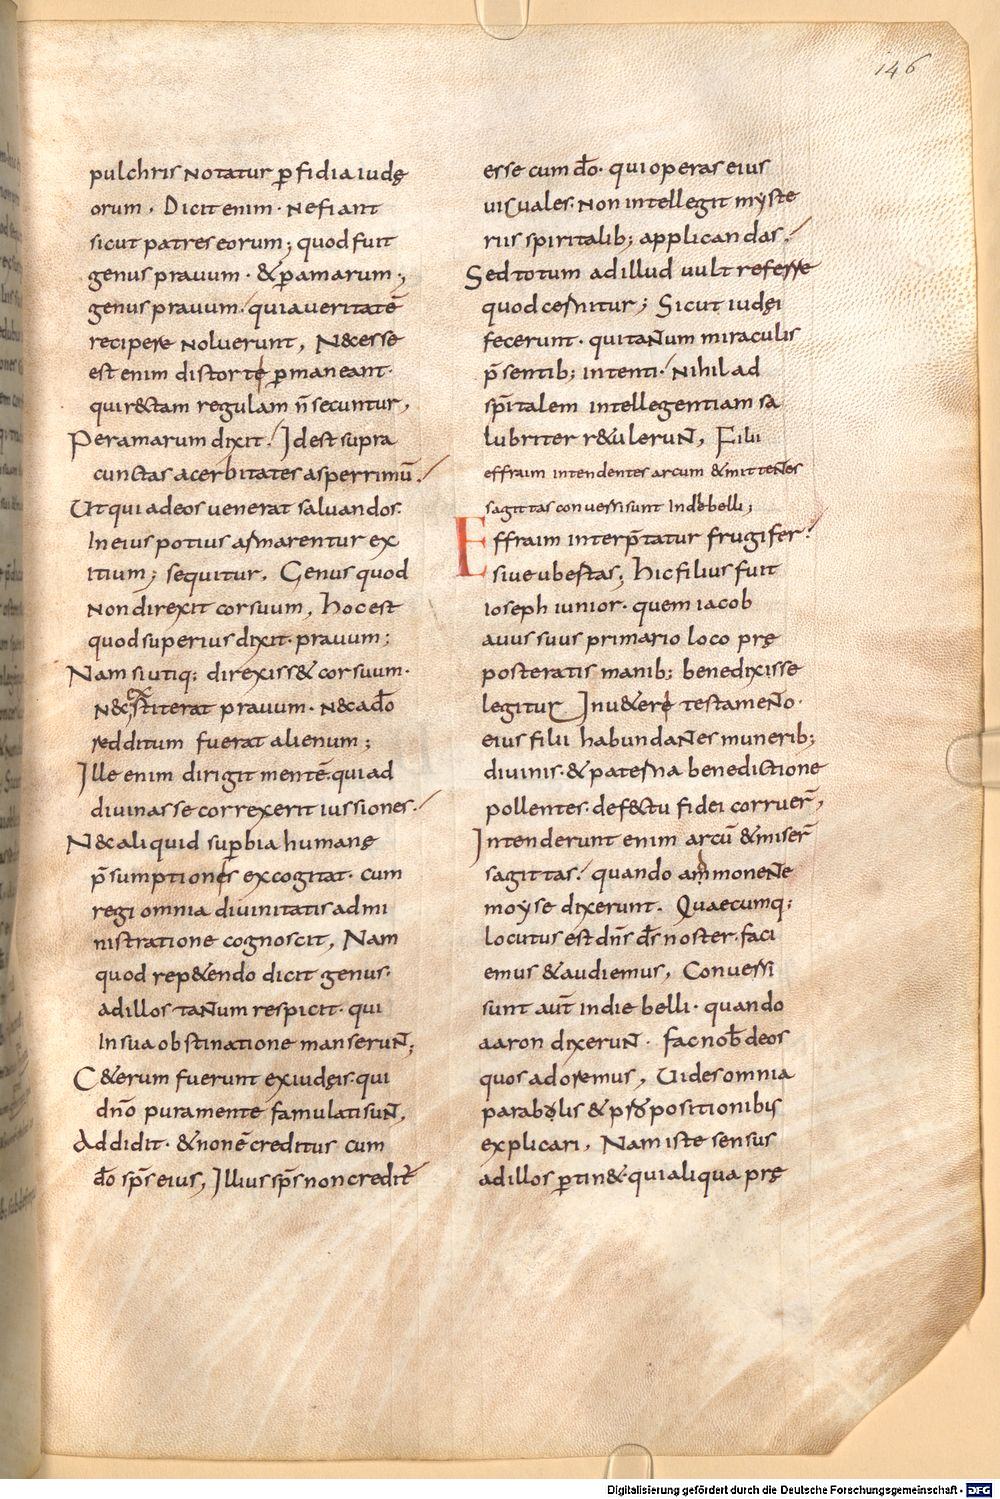 146
pulchris notatur p̱fidia iudę
orum. Dicit enim. ne fiant
sicut patres eorum; quod fuit
genus prauum. & p̱amarum;
genus prauum. quia ueritatē
recipere noluerunt, N&esse
est enim distorte p̱maneant.
qui r&tam regulam n̄ secuntur,
Peramarum dixit. Idest supra
cunctas acerbitates asperrimū.
Ut qui ad eos uenerat saluandos.
In eius potius armarentur ex
itium; sequitur. Genus quod
non direxit cor suum, hoc est
quod superius dixit. prauum;
Nam si utiq; direxiss& cor suum.
n& extiterat prauum. n& a dō
redditum fuerat alienum;
Ille enim dirigit mentē. qui ad
diuinas se correxerit iussiones.
N& aliquid sup̱bia humanę
p̄sumptiones excogitat. cum
regi omnia diuinitatis admi
nistratione cognoscit, Nam
quod rep&endo dicit genus.
ad illos tantum respicit. qui
In sua obstinatione manserunt;
C&erum fuerunt ex iudęis. qui
dn̄o pura mente famulati sunt,
Addidit. & non ē creditus cum
dō sp̄s eius, Illius sp̄s non credit̄
esse cum dō. qui operas eius
uisuales. non intellegit myste
riis spiritalib; applicandas.
Sed totum ad illud uult referre
quod cernitur; Sicut iudęi
fecerunt. qui tantum miraculis
p̄sentib; intenti. nihil ad
sp̄italem intellegentiam sa
lubriter r&ulerunt, Filii
effraim intendentes arcum & mittentes
sagittas conuersi sunt In die belli;
Effraim interp̄tatur frugifer.
siue ubertas; hic filius fuit
ioseph iunior. quem iacob
auus suus primario loco prę
posteratis manib; benedixisse
legitur In u&ere testamento.
eius filii habundantes munerib;
diuinis. & paterna benedictione
pollentes. def&tu fidei corruer̄,
Intenderunt enim arcū & miser̄
sagittas. quando admonente
moyse dixerunt. Quaecumq;
locutus est dn̄s d̄s noster. faci
emus & audiemus, Conuersi
sunt aut̄ in die belli. quando
aaron dixerunt. fac nob̄ deos
quos adoremus, Uides omnia
parabolis & propositionibus
explicari, Nam iste sensus
ad illos p̱tin&. qui aliqua prę
Digitalisierung gefördert durch die Deutsche Forschungsgemeinschaft - DFG